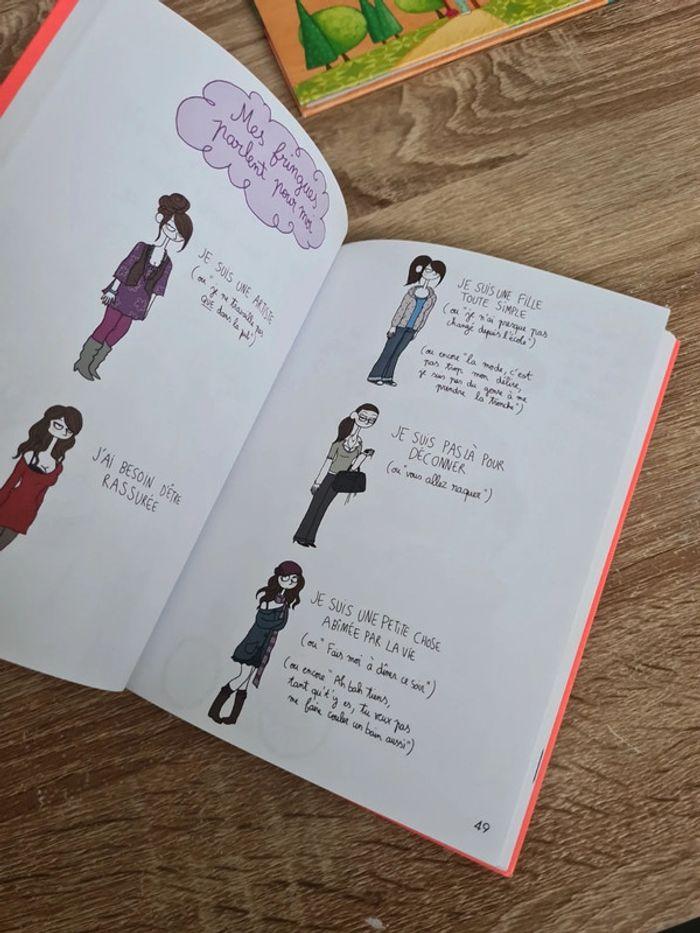 Mes fringues
parlent pour moi
JE SUIS UNE ARTISTE
(ou "je ne travaille pas
QUE dans la pub")
J'AI BESOIN D'ÊTRE
RASSURÉE
JE SUIS UNE FILLE
TOUTE SIMPLE
(ou "je n'ai presque pas
changé depuis l'école")
(ou encore "la mode, c'est
pas trop mon délire,
je suis pas du genre à me
prendre la tronche")
JE SUIS PAS LÀ POUR
DÉCONNER
(ou "vous allez raquer")
JE SUIS UNE PETITE CHOSE
ABÎMÉE PAR LA VIE
(ou "Fais moi à dîner ce soir")
(ou encore "Ah bah tiens,
tant qu't'y es, tu veux pas
me faire couler un bain aussi")
49